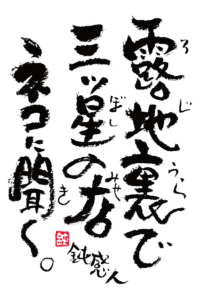 露地裏で
三ッ星の店
ネコに聞く。
鈍感人
ろじうら
ぼしみせ
き